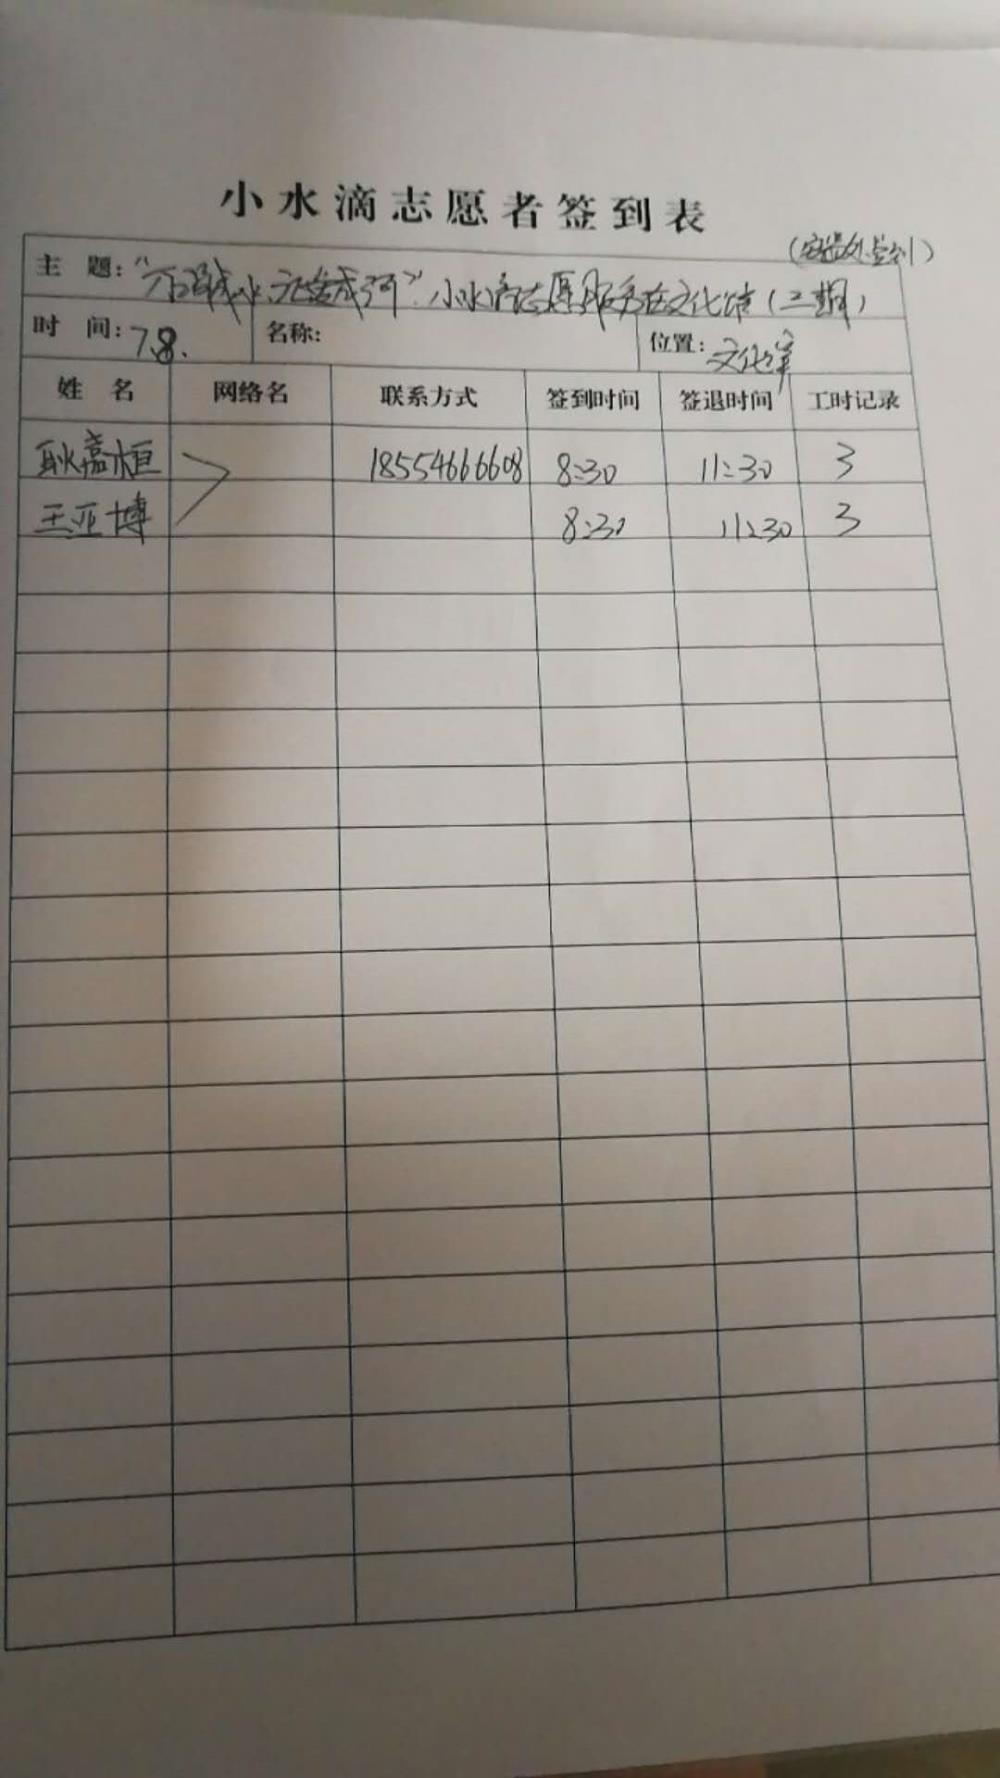 小水滴志愿者签到表
签到）
主 题：“ 成河”小水滴志愿服务在文化馆（二期）
时 间：7.8. 名称： 位置：文化馆
姓 名 网络名 联系方式 签到时间 签退时间 工时记录
耿嘉桓 18554666608 8:30 11:30 3
王亚博 8:30 11:30 3